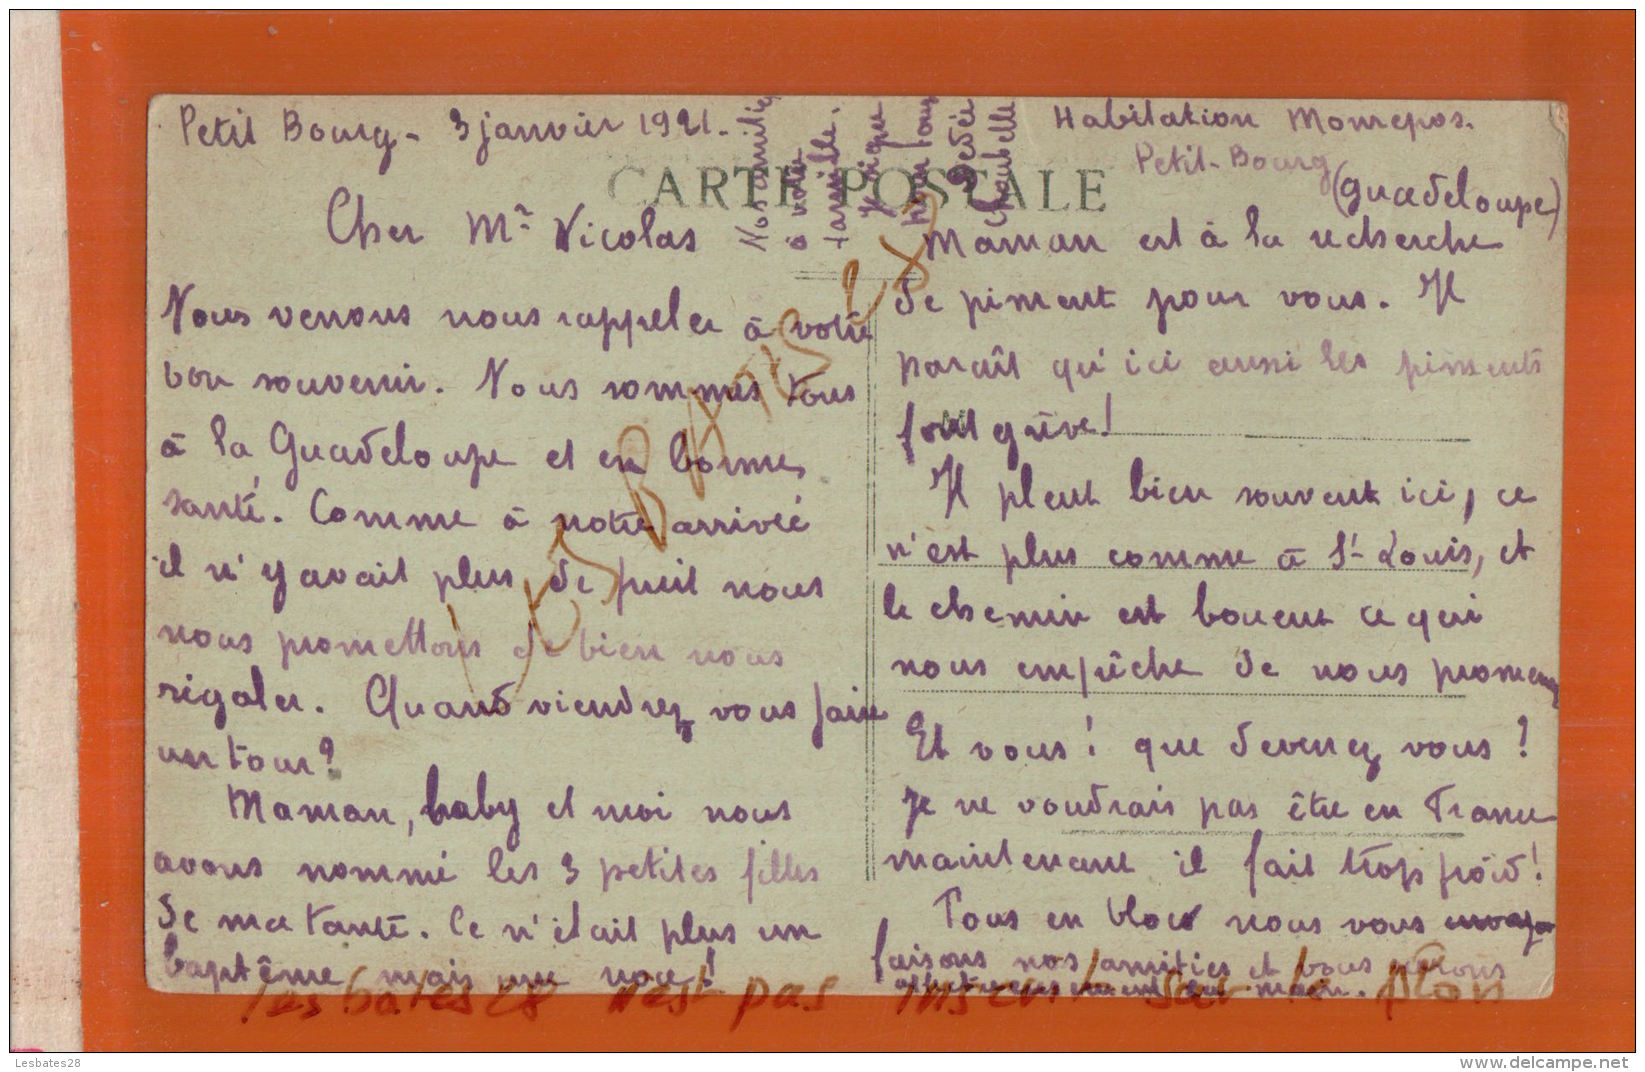 Petit Bourg - 3 janvier 1921.
CARTE POSTALE
Cher Mr Nicolas
Nous venons nous rappeler à votre
bon souvenir. Nous sommes tous
à la Guadeloupe et en bonnes
santé. Comme à notre arrivée
il n'y avait plus de fusil nous
nous promettons de bien nous
rigoler. Quand viendrez vous faire
un tour?
Maman, baby et moi nous
avons nommé les 3 petites filles
de ma tante. Ce n'était plus un
baptême mais une noce!
Nos amitiés
à votre
famille.
pour tous
Dédée
Habitation Monrepos.
Petit-Bourg
(Guadeloupe)
Maman est à la recherche
de piment pour vous. Il
paraît qu'ici aussi les piments
font grève!
Il pleut bien souvent ici, ce
n'est plus comme à St Louis, et
le chemin est boueux ce qui
nous empêche de nous promener
Et vous! que devenez vous?
Je ne voudrais pas être en France
maintenant il fait trop froid!
Tous en bloc nous vous envoyons
faisons nos amitiés et vous serrons
affectueusement la main.
LESBATES28
lesbates28 n'est pas inscrit sur le
Lesbates28
www.delcampe.net